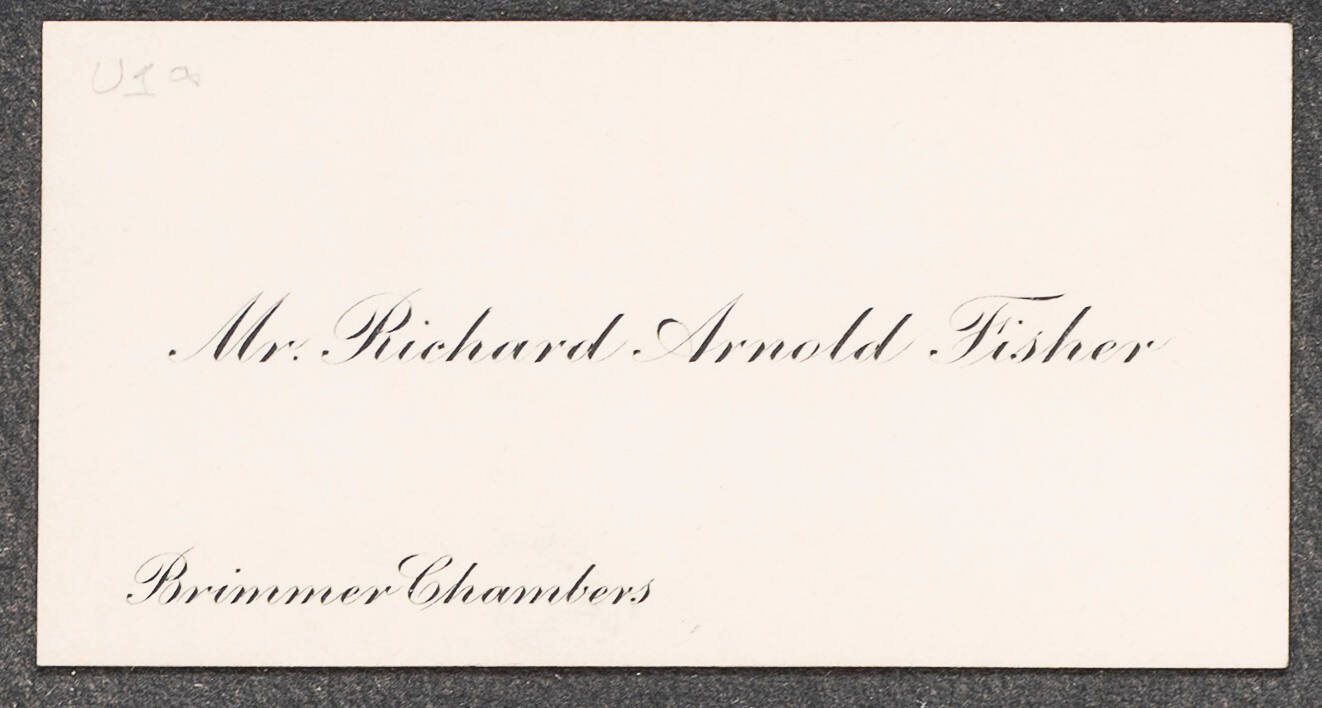 U1a
Mr. Richard Arnold Fisher
Brimmer Chambers